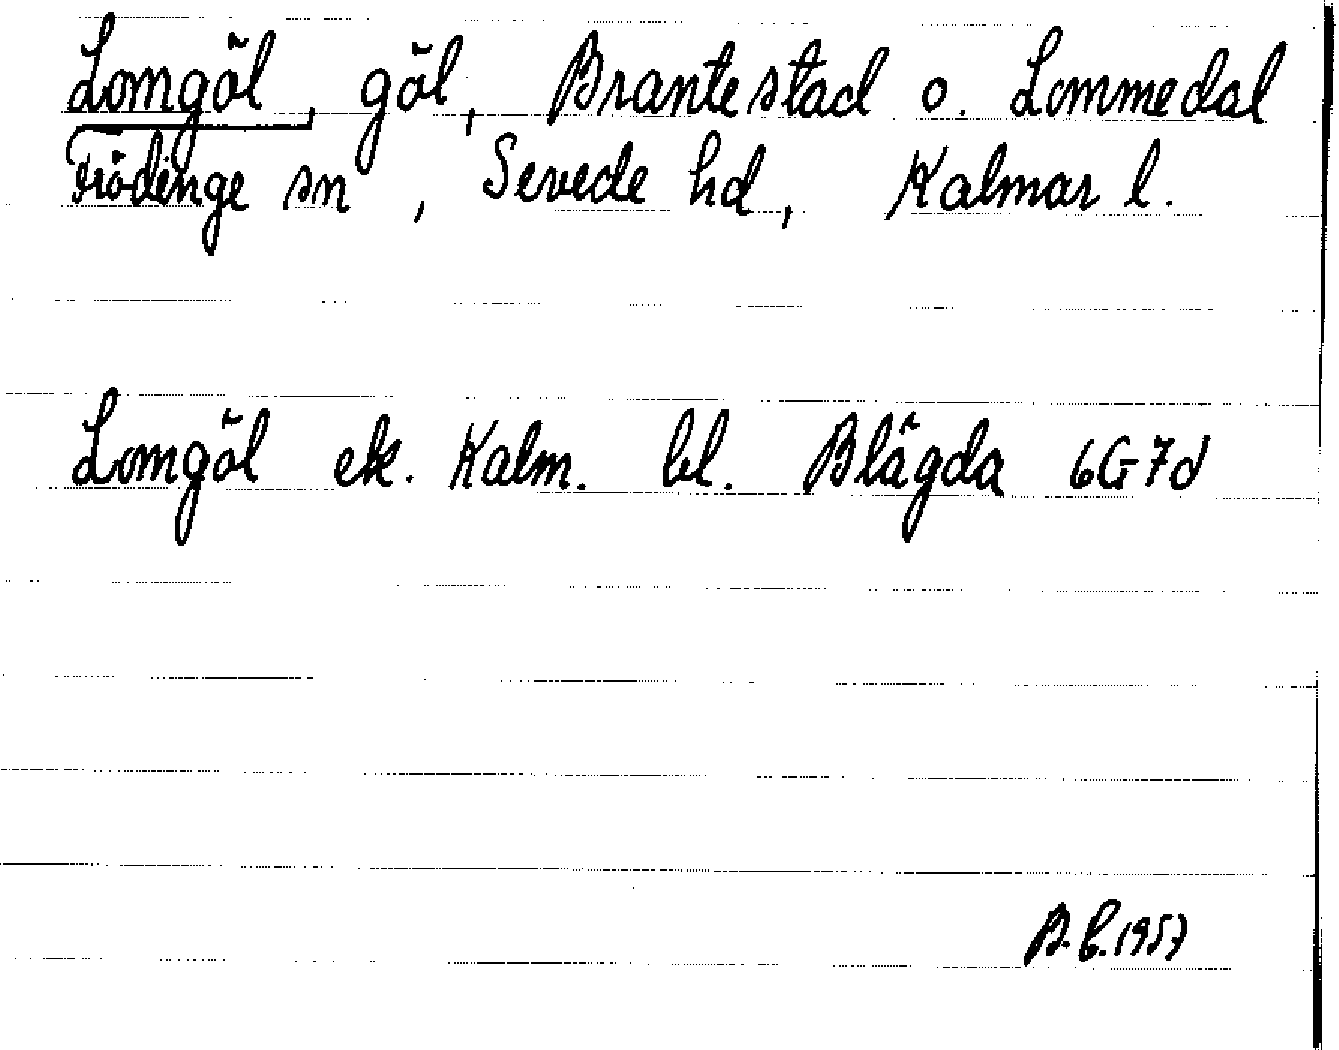 Lomgöl, göl, Brantestad o. Lommedal
Frödinge sn, Sevede hd, Kalmar l.
Lomgöl ek. Kalm. bl. Blågda 6G7d
B.b. 1957